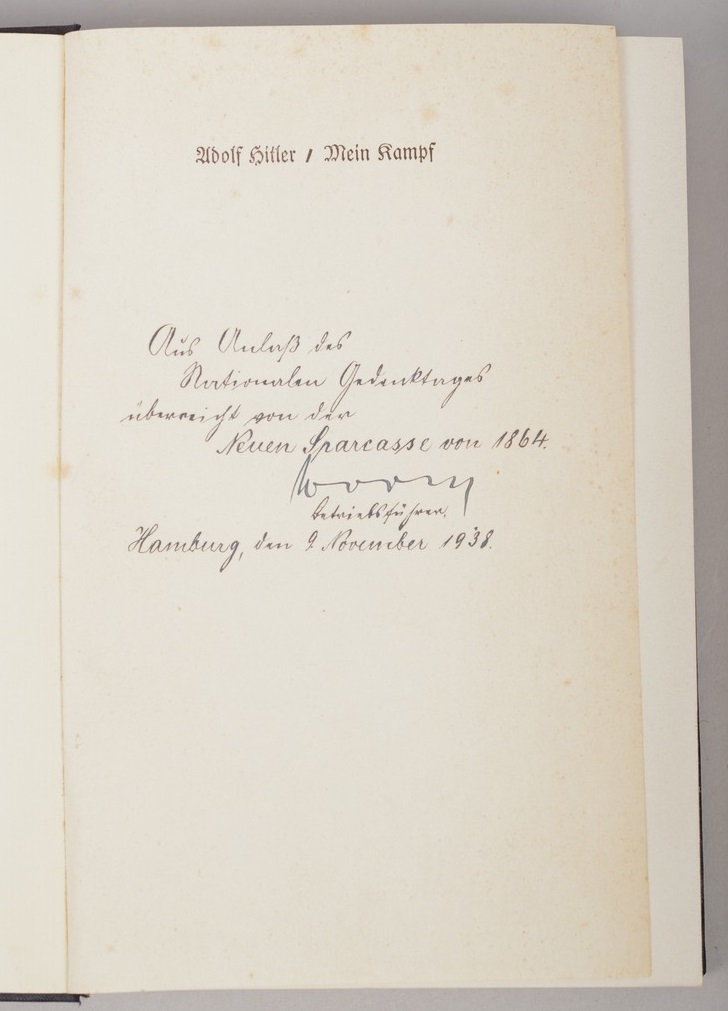 Adolf Hitler / Mein Kampf
Aus Anlaß des
Nationalen Gedenktages
überreicht von der
Neuen Sparcasse von 1864.
Betriebsführer.
Hamburg, den 9 November 1938.